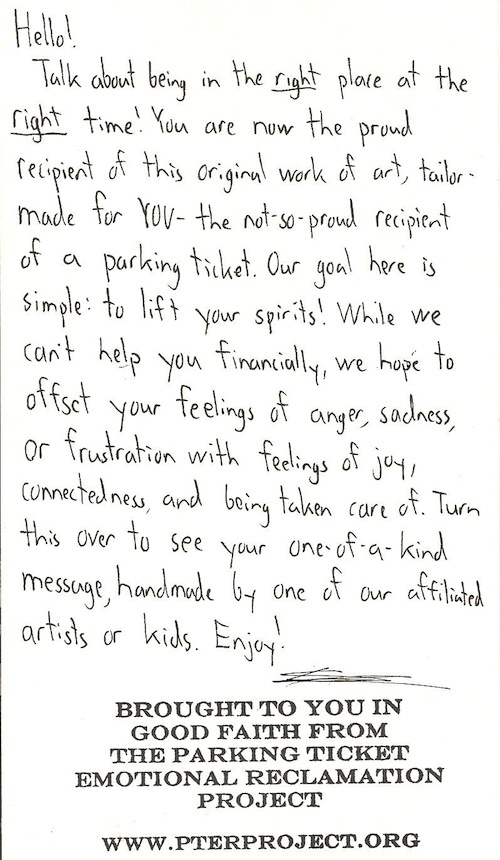 Hello!
Talk about being in the right place at the
right time! You are now the proud
recipient of this original work of art, tailor-
made for YOU- the not-so-proud recipient
of a parking ticket. Our goal here is
simple: to lift your spirits! While we
can't help you financially, we hope to
offset your feelings of anger, sadness,
or frustration with feelings of joy,
connectedness, and being taken care of. Turn
this over to see your one-of-a-kind
message, handmade by one of our affiliated
artists or kids. Enjoy!
BROUGHT TO YOU IN
GOOD FAITH FROM
THE PARKING TICKET
EMOTIONAL RECLAMATION
PROJECT
WWW.PTERPROJECT.ORG